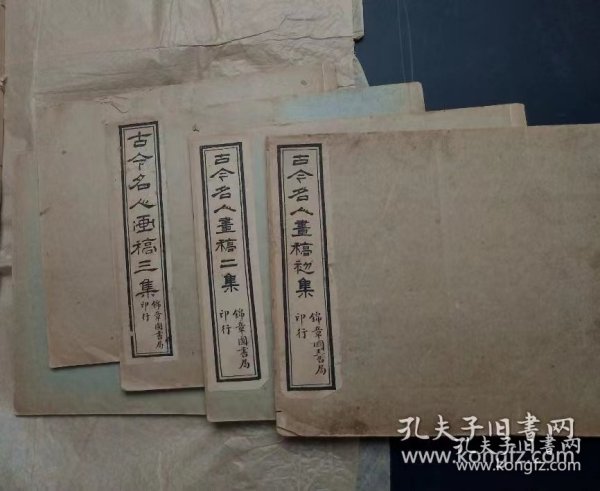 古今名人畫稿初集
錦章圖書局
印行
古今名人畫稿二集
錦章圖書局
印行
古今名人画稿三集
錦章圖書局
印行
孔夫子旧書网
www.kongfz.com
孔夫子旧書网
www.kongfz.com